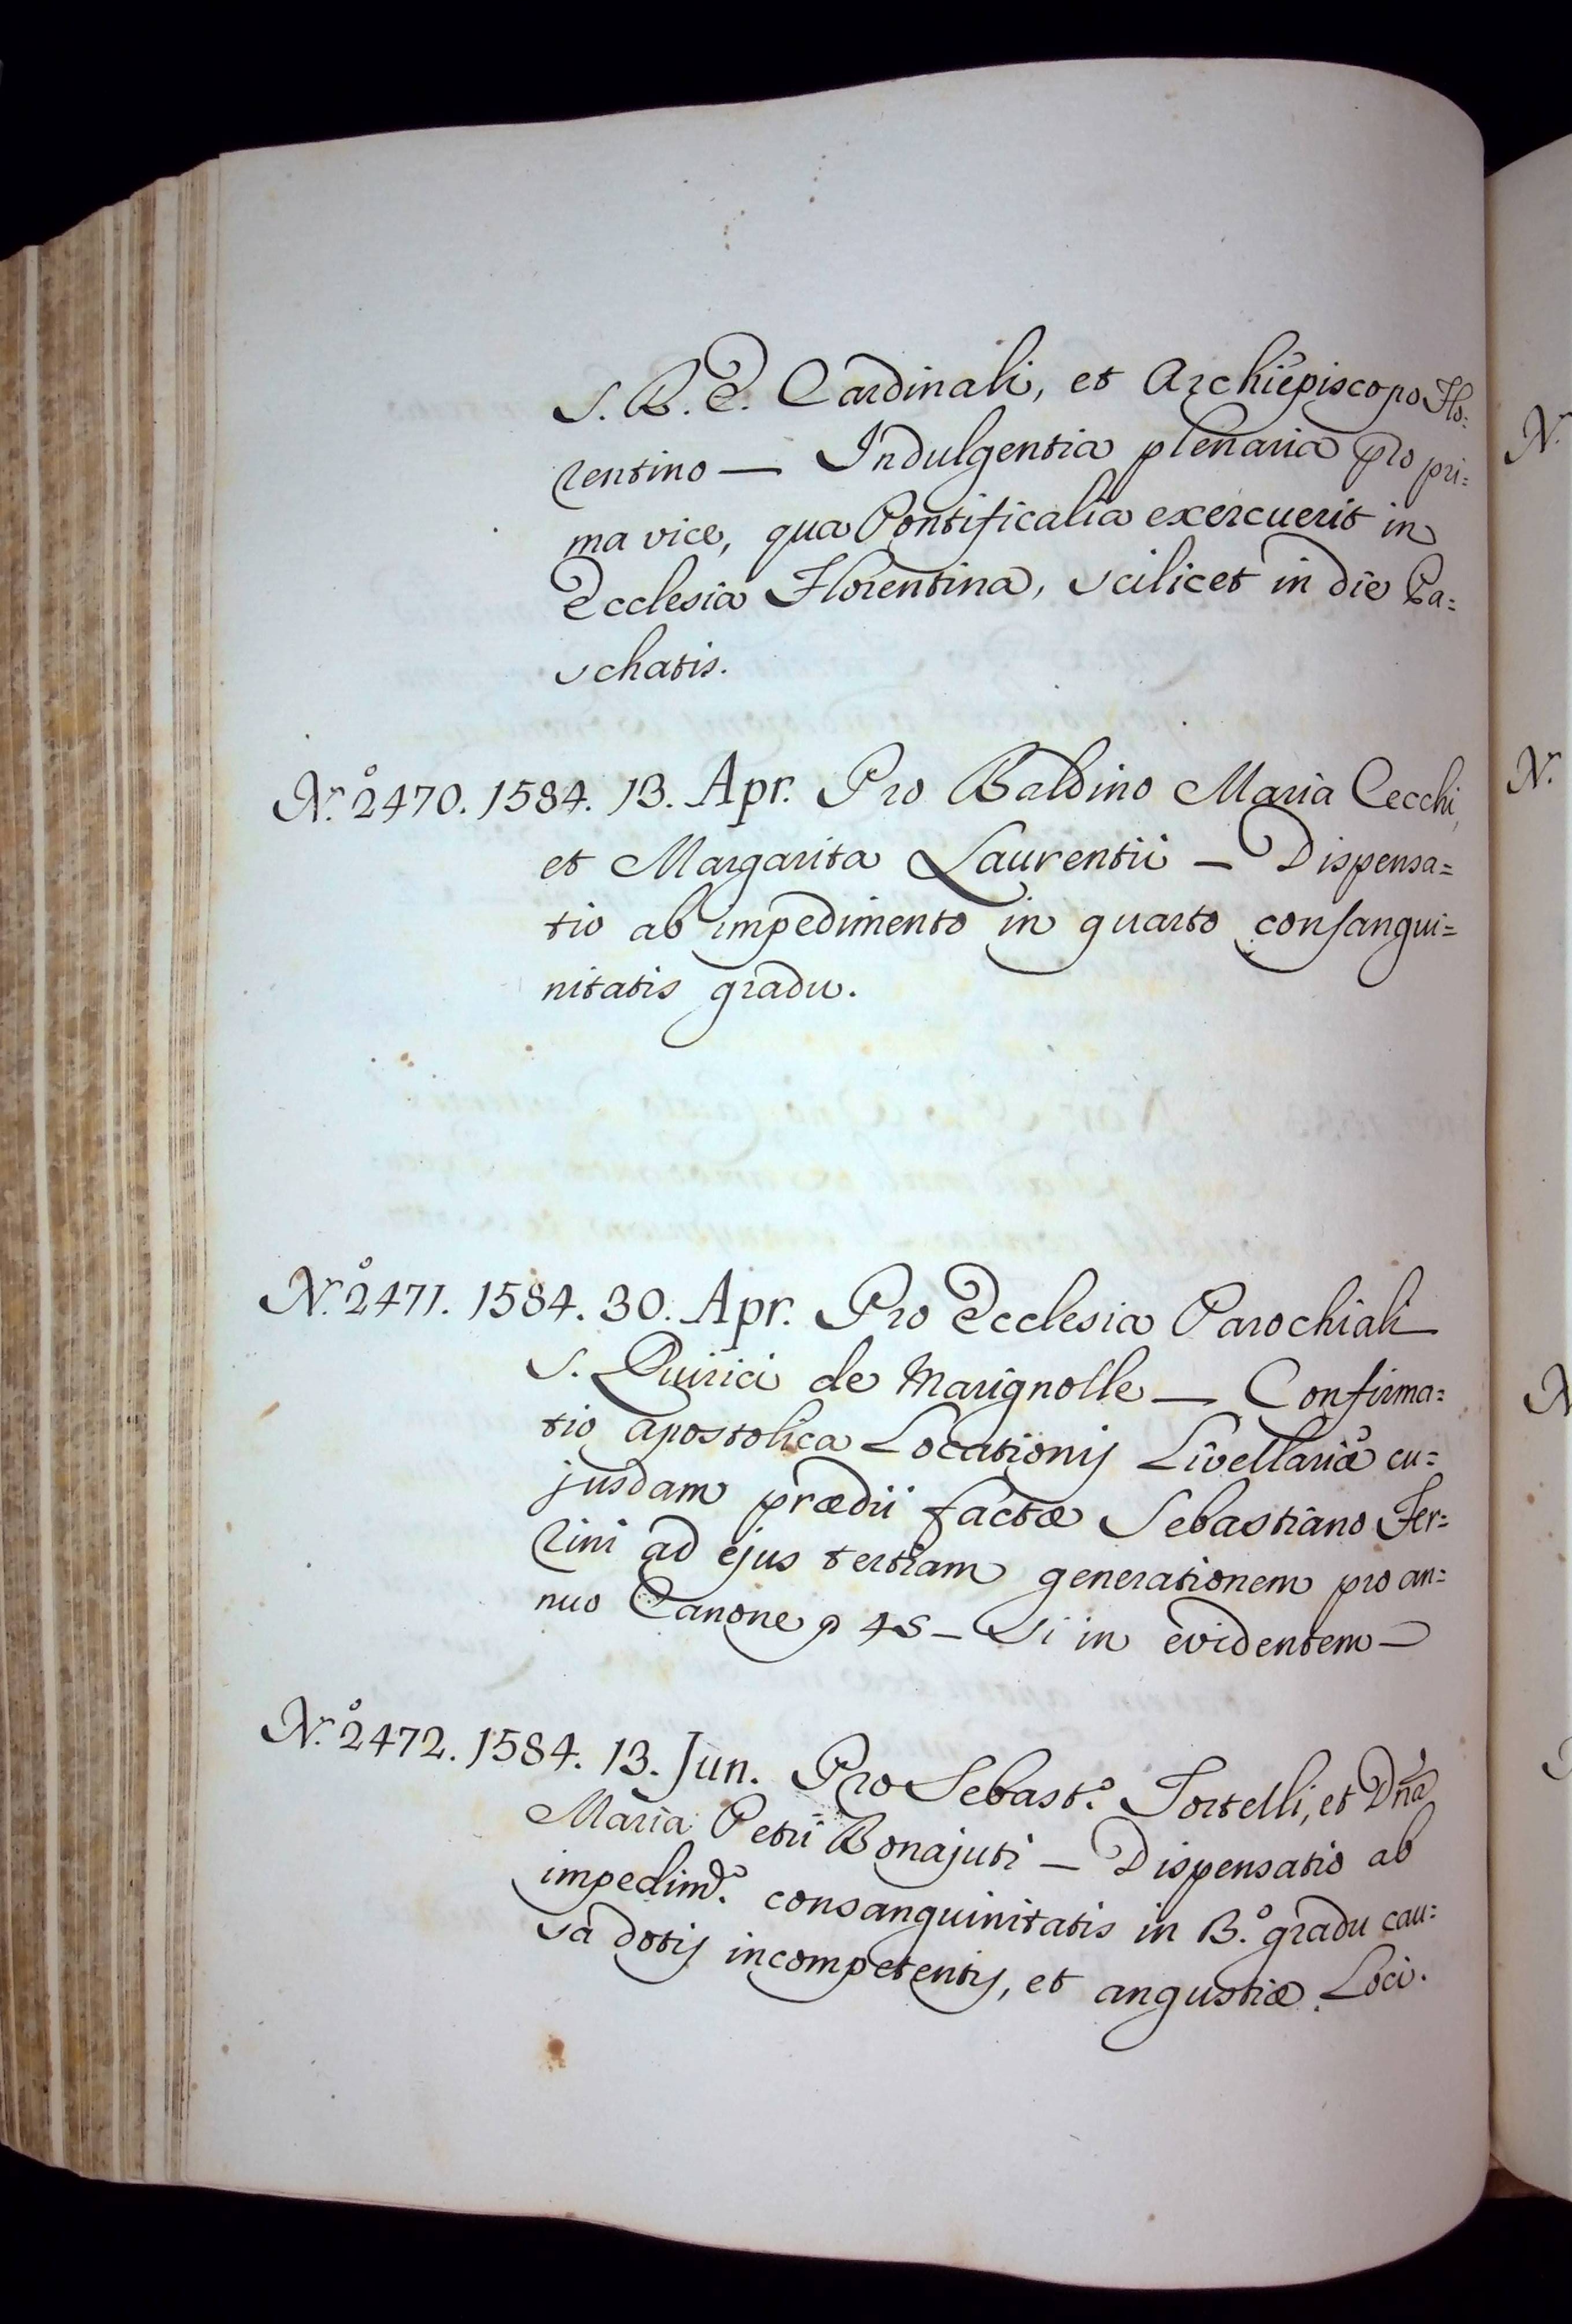 S. R. E. Cardinali, et Archiepiscopo Flo=
rentino — Indulgentia plenaria pro pri=
ma vice, qua Pontificalia exercuerit in
Ecclesia Florentina, scilicet in die Pa=
schatis.
N.º 2470. 1584. 13. Apr. Pro Baldino Maria Cecchi,
et Margarita Laurentii — Dispensa=
tio ab impedimento in quarto consangui=
nitatis gradu.
N.º 2471. 1584. 30. Apr. Pro Ecclesia Parochiali
S. Quirici de Marignolle — Confirma=
tio apostolica Locationis Livellariæ cu=
jusdam prædii factæ Sebastiano Fer=
rini ad ejus tertiam generationem pro an=
nuo Canone 48 — Si in evidentem —
N.º 2472. 1584. 13. Jun. Pro Sebast.º Tortelli, et Dña
Maria Petri Bonajuti — Dispensatio ab
impedim.º consanguinitatis in 3.º gradu cau=
sa dotis incompetentis, et angustiæ Loci.
N.
N.
N